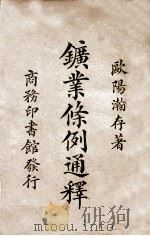 歐陽瀚存著
鑛業條例通釋
商務印書館發行